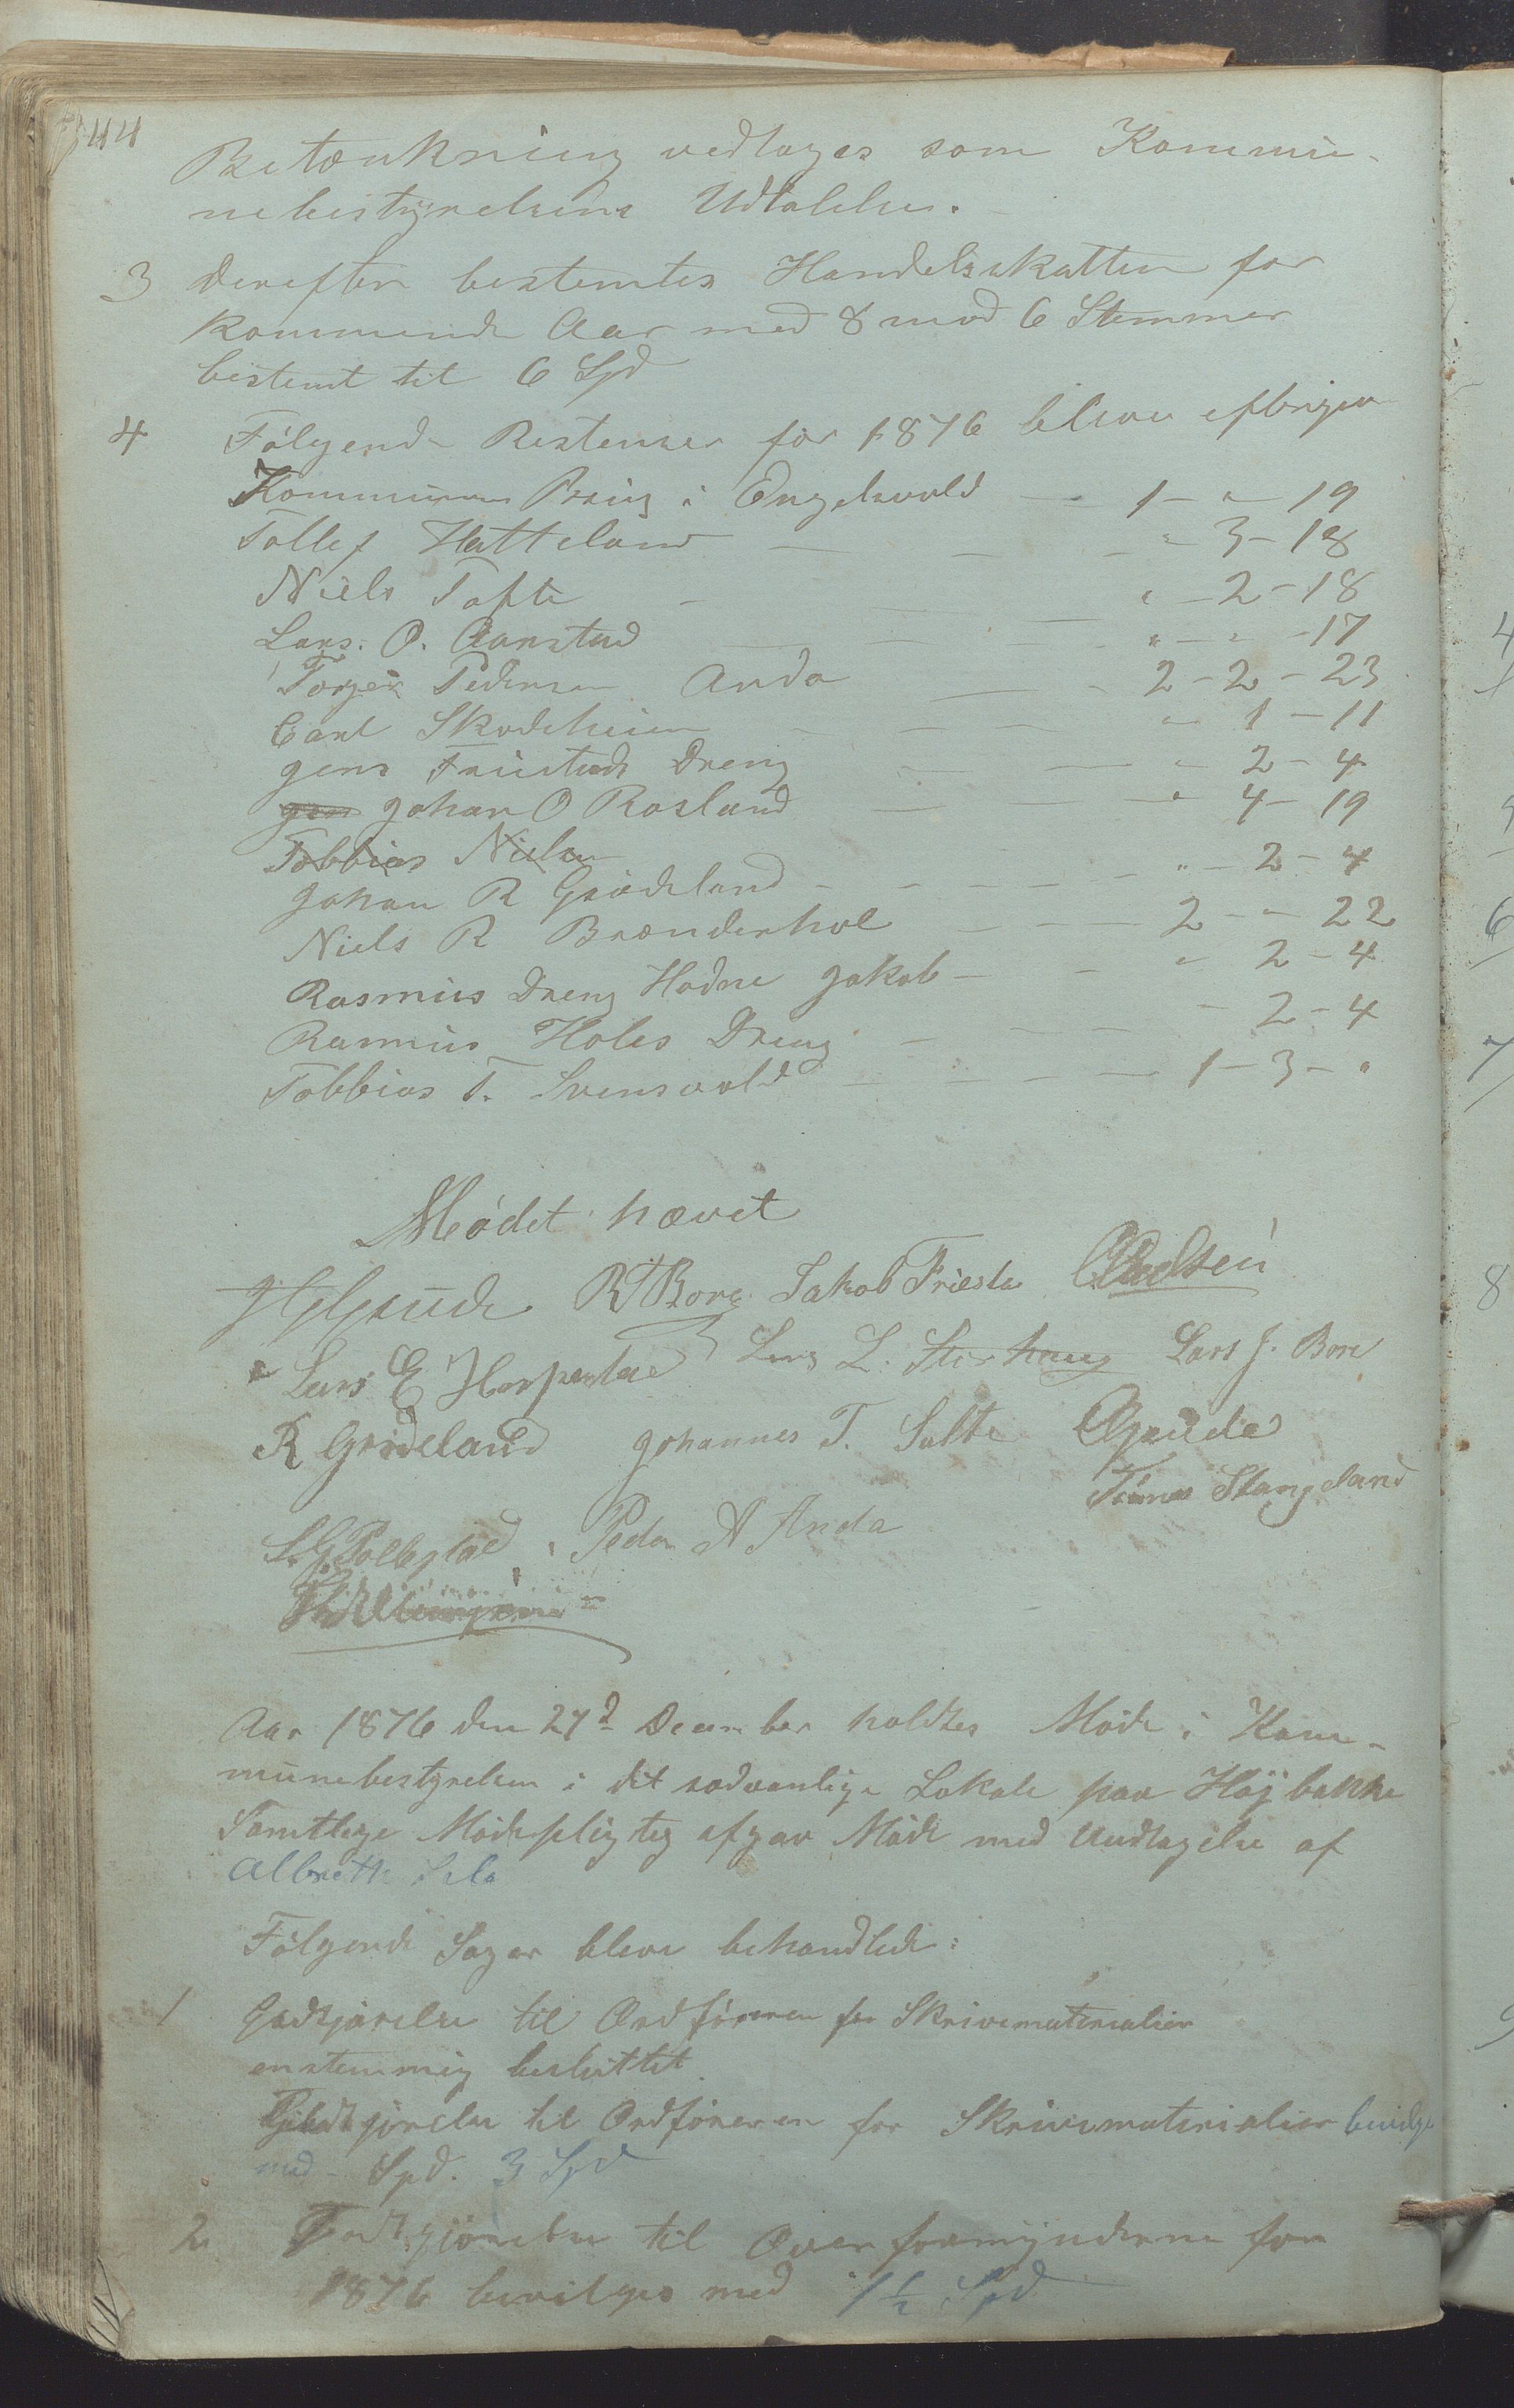 44
Betænkning vedtages som Kommu-
nebestyrelsens Udtalelse.
3 Derefter bestemtes Handelsskatten for
kommende Aar med 8 mod 6 Stemmer
bestemt til 6 Spd
4 Følgende Restenser for 1876 bleve eftergivne
i Engelsvold — 1 - " - 19
Tollef Hatteland — — " - 3 - 18
Niels Tofte — " - 2 - 18
Lars. O. Aarstad — " - " - 17
Torger Pedersen Anda — 2 - 2 - 23
Carl Skadsheim — " - 1 - 11
Jens Friestads Dreng — " - 2 - 4
Johan O Rosland — " 4 - 19
Tobbias Nielsen
Johan R Grødeland — " - 2 - 4
Niels R Brænderhol — 2 - " - 22
Rasmus Dreng Hodne Jakob — " 2 - 4
Rasmus Holes Dreng — - 2 - 4
Tobbias T. Svensvold — 1 - 3 - "
Mødet hævet
R T Bore Jakob Friestad
Lars E Horpestad Lars L. Storhaug Lars J. Bore
R Grødeland Johannes T. Salte Grude
Tønnes Stangeland
Peder A Anda
Aar 1876 den 27d December holdtes Møde i Kom-
munebestyrelsen i det sædvanlige Lokale paa Højbakke
Samtlige Mødepligtig afgav Møde med Undtagelse af
Albreth Sele
Følgende Sager bleve behandlede:
1 Godtgjørelse til Ordføreren for Skrivematerialier
enstemmig besluttet
Godtgjørelse til Ordføreren for Skrivematerialier bevilges
med Spd. 3 Spd
2 Godtgjørelse til Overformynderne for
1876 bevilges med 1 1/2 Spd